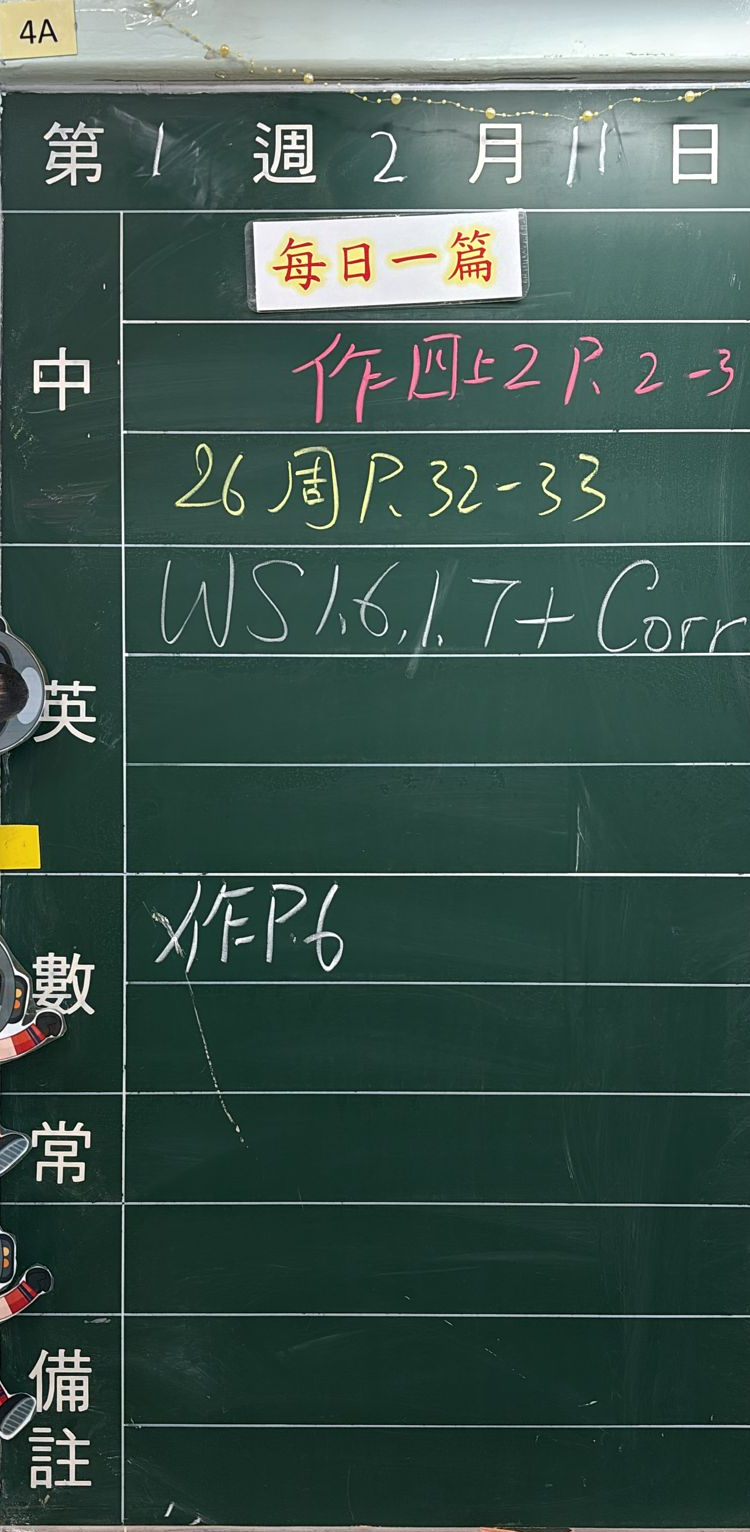 4A
第 1 週 2 月 11 日
每日一篇
中
作四上2 P. 2-3
26周 P. 32-33
英
WS 1.6, 1.7 + Corr
數
作 P.6
常
備註